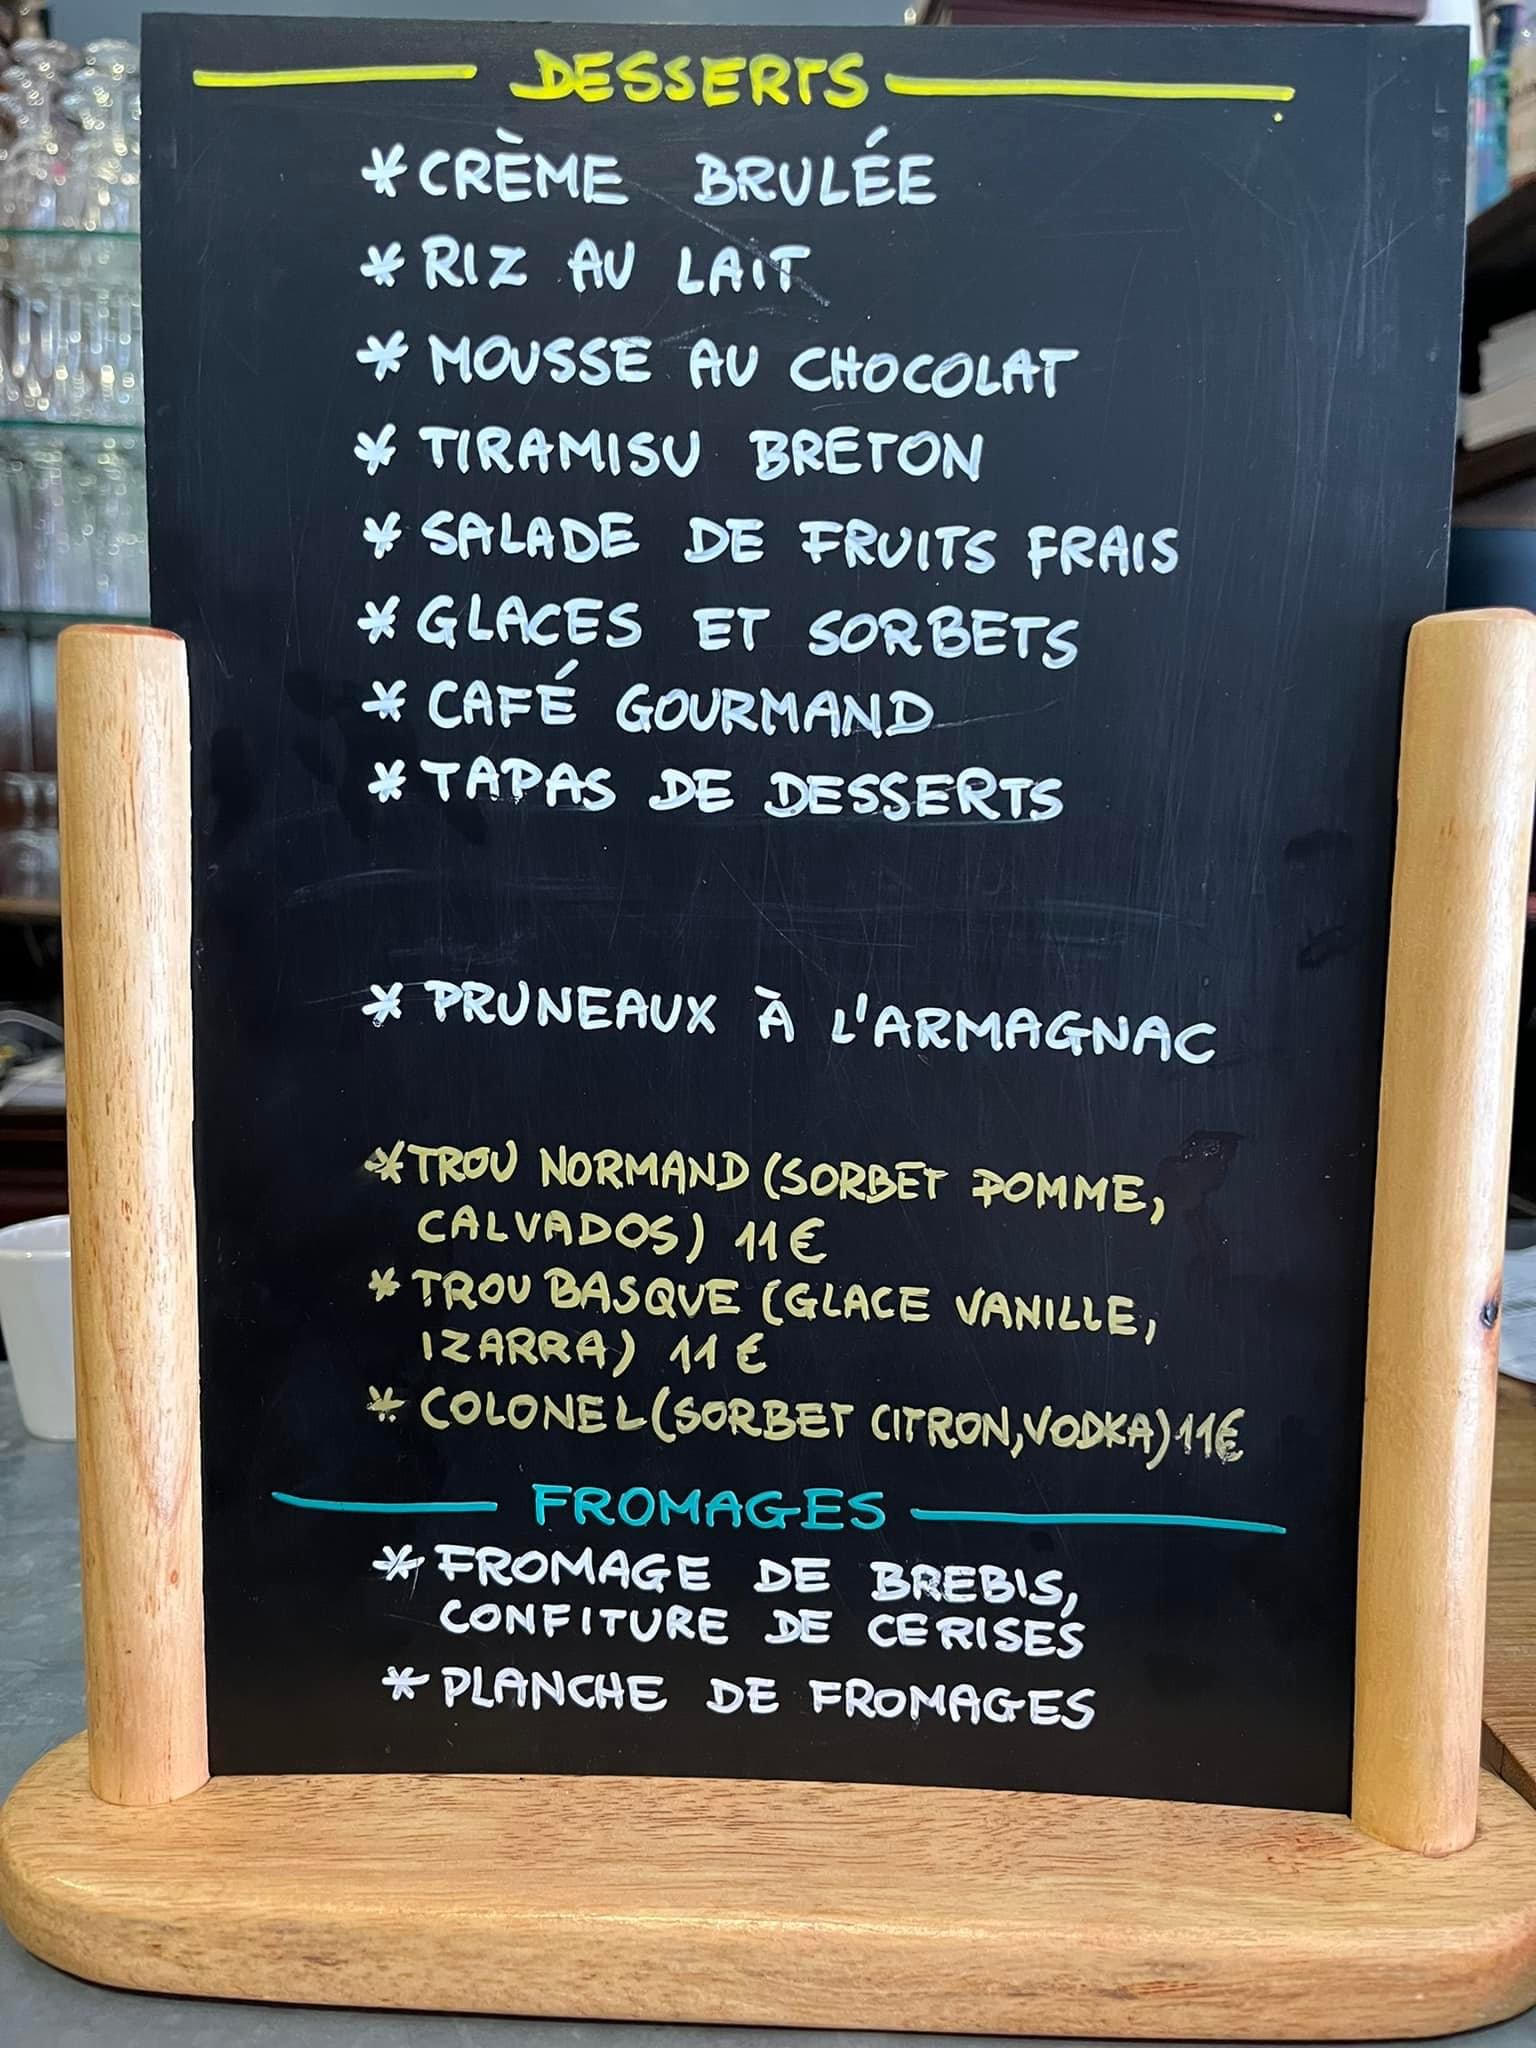 DESSERTS
* CRÈME BRULÉE
* RIZ AU LAIT
* MOUSSE AU CHOCOLAT
* TIRAMISU BRETON
* SALADE DE FRUITS FRAIS
* GLACES ET SORBETS
* CAFÉ GOURMAND
* TAPAS DE DESSERTS
* PRUNEAUX À L'ARMAGNAC
* TROU NORMAND (SORBET POMME,
CALVADOS) 11€
* TROU BASQUE (GLACE VANILLE,
IZARRA) 11€
* COLONEL (SORBET CITRON, VODKA) 11€
FROMAGES
* FROMAGE DE BREBIS,
CONFITURE DE CERISES
* PLANCHE DE FROMAGES